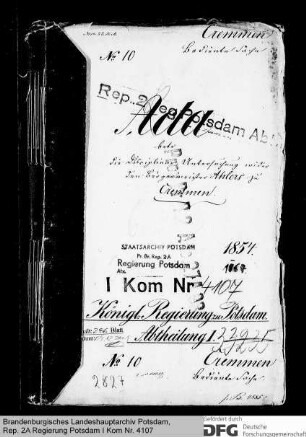 Cremmen
No 10
Bediente Sache
Rep. 2 Reg. Potsdam Abt. I
Acta
betr.
die Disciplinar Untersuchung wider
den Bürgermeister Ahlers zu
Cremmen.
STAATSARCHIV POTSDAM
Pr. Br. Rep. 2A
Regierung Potsdam
Abt.
1854
I Kom Nr 4107
Königl. Regierung zu Potsdam.
Abtheilung I
Blatt
No 10
Cremmen
2827
Brandenburgisches Landeshauptarchiv Potsdam,
Rep. 2A Regierung Potsdam I Kom Nr. 4107
Gefördert durch
DFG Deutsche
Forschungsgemeinschaft